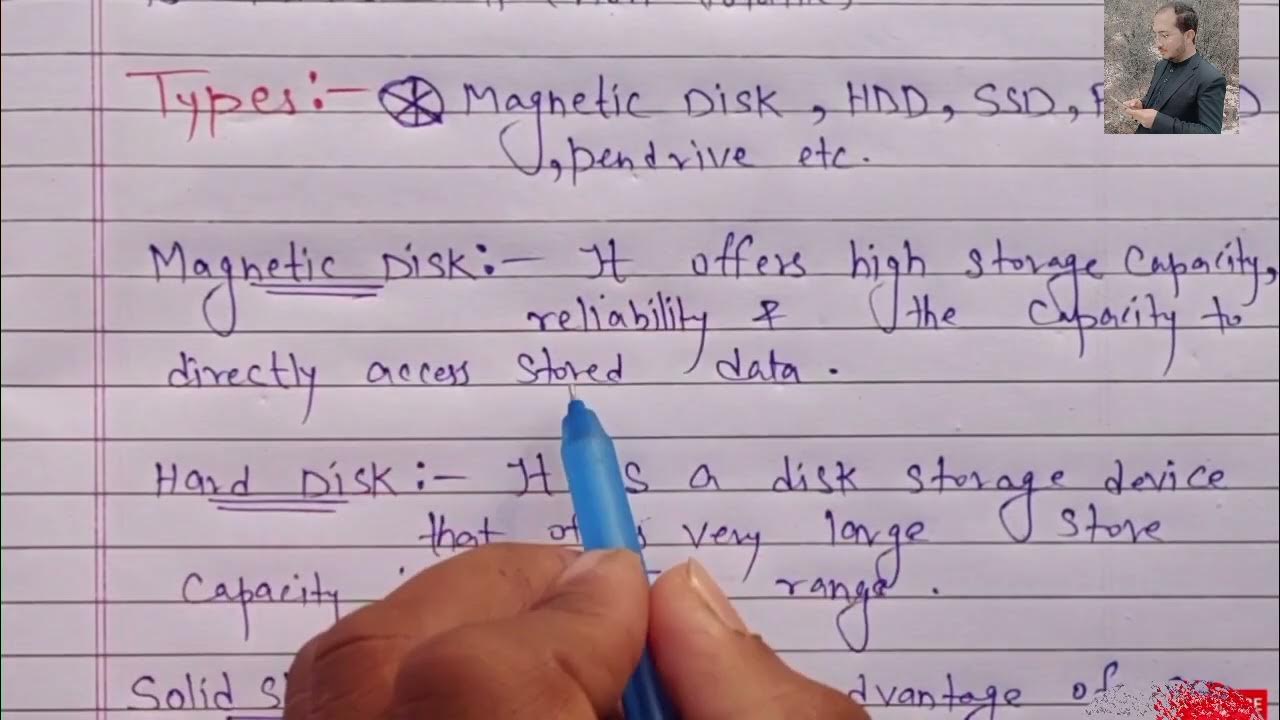 Types:- Magnetic Disk, HDD, SSD,
, pendrive etc.
Magnetic Disk:- It offers high storage capacity,
reliability & the capacity to
directly access stored data.
Hard Disk:- It is a disk storage device
that very large store
capacity range.
Solid advantage of